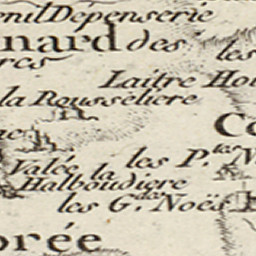 enil Depenserie
nard des les
res
Laitre Hou
la Rousseliere
Co
les P.tes N
Valée la
Halboudiere
les G.des Noës
orée